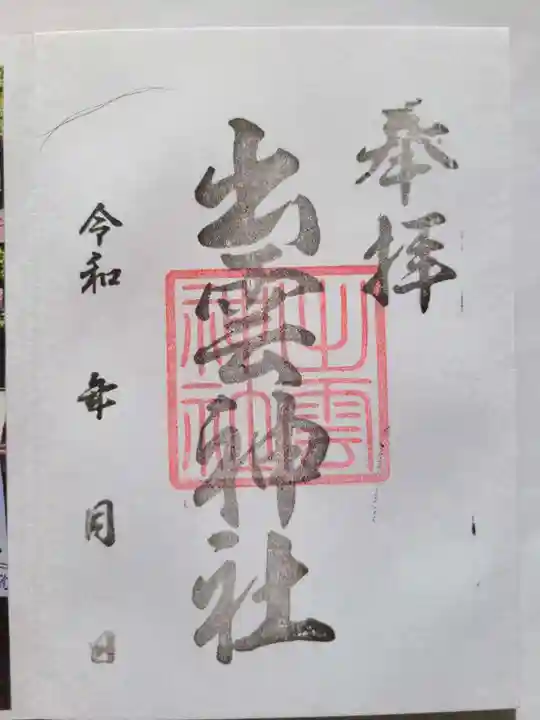 奉拝
出雲神社
出雲神社
令和 年 月 日